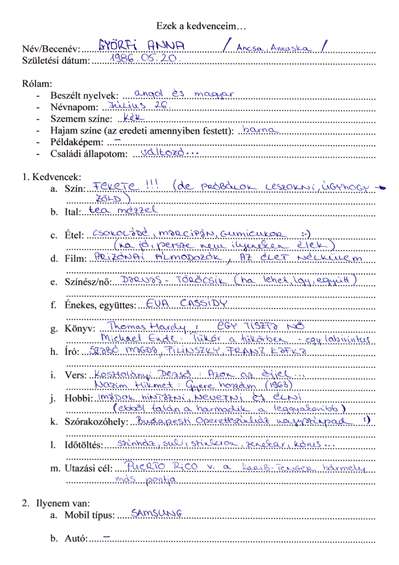 Ezek a kedvenceim…
Név/Becenév: GYÖRFI ANNA / Ancsa, Annuska /
Születési dátum: 1986. 05. 20
Rólam:
- Beszélt nyelvek: angol és magyar
- Névnapom: Július 26
- Szemem színe: kék
- Hajam színe (az eredeti amennyiben festett): barna
- Példaképem: –
- Családi állapotom: változó...
1. Kedvencek:
a. Szín: FEKETE !!! (de PRÓBÁLOK LESZOKNI, ÚGYHOGY → ZÖLD)
b. Ital: tea mézzel
c. Étel: CSOKOLÁDÉ, MARCIPÁN, GUMICUKOR :-)
(na jó, persze nem ilyeneken élek)
d. Film: ARIZONAI ÁLMODOZÓK, AZ ÉLET NÉLKÜLEM
e. Színész/nő: DARVAS - TÖRŐCSIK (ha lehet, így együtt)
f. Énekes, együttes: EVA CASSIDY
g. Könyv: Thomas Hardy: EGY TISZTA NŐ
Michael Ende: Tükör a tükörben - egy labirintus
h. Író: SZABÓ MAGDA, PILINSZKY, FRANZ KAFKA
i. Vers: Kosztolányi Dezső: Azon az éjjel...
Nazim Hikmet: Gyere hozzám (1963)
j. Hobbi: IMÁDOK HINTÁZNI, NEVETNI ÉS ÉLNI
(ebből talán a harmadik a leggyakoribb)
k. Szórakozóhely: Budapesti Operettszínház nagyszínpad :)
l. Időtöltés: színház, suli, zenekar, kórus...
m. Utazási cél: PUERTO RICO v. a KARIB-TENGER bármely
más pontja
2. Ilyenem van:
a. Mobil típus: SAMSUNG
b. Autó: –